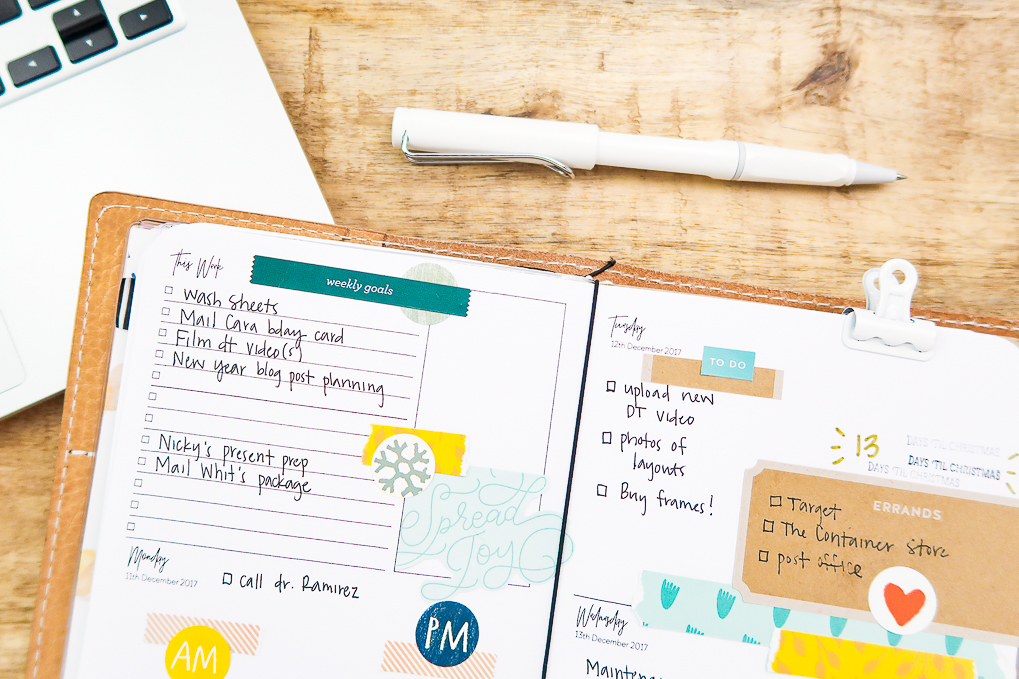 This Week
weekly goals
Wash Sheets
Mail Cara bday card
Film dt video(s)
New year blog post planning
Nicky's present prep
Mail Whit's package
Spread
Joy
Monday
11th December 2017
call dr. Ramirez
AM
PM
Tuesday
12th December 2017
TO DO
upload new
DT video
photos of
layouts
Buy frames!
13
DAYS 'TIL CHRISTMAS
DAYS 'TIL CHRISTMAS
DAYS 'TIL CHRISTMAS
ERRANDS
Target
The Container Store
post office
Wednesday
13th December 2017